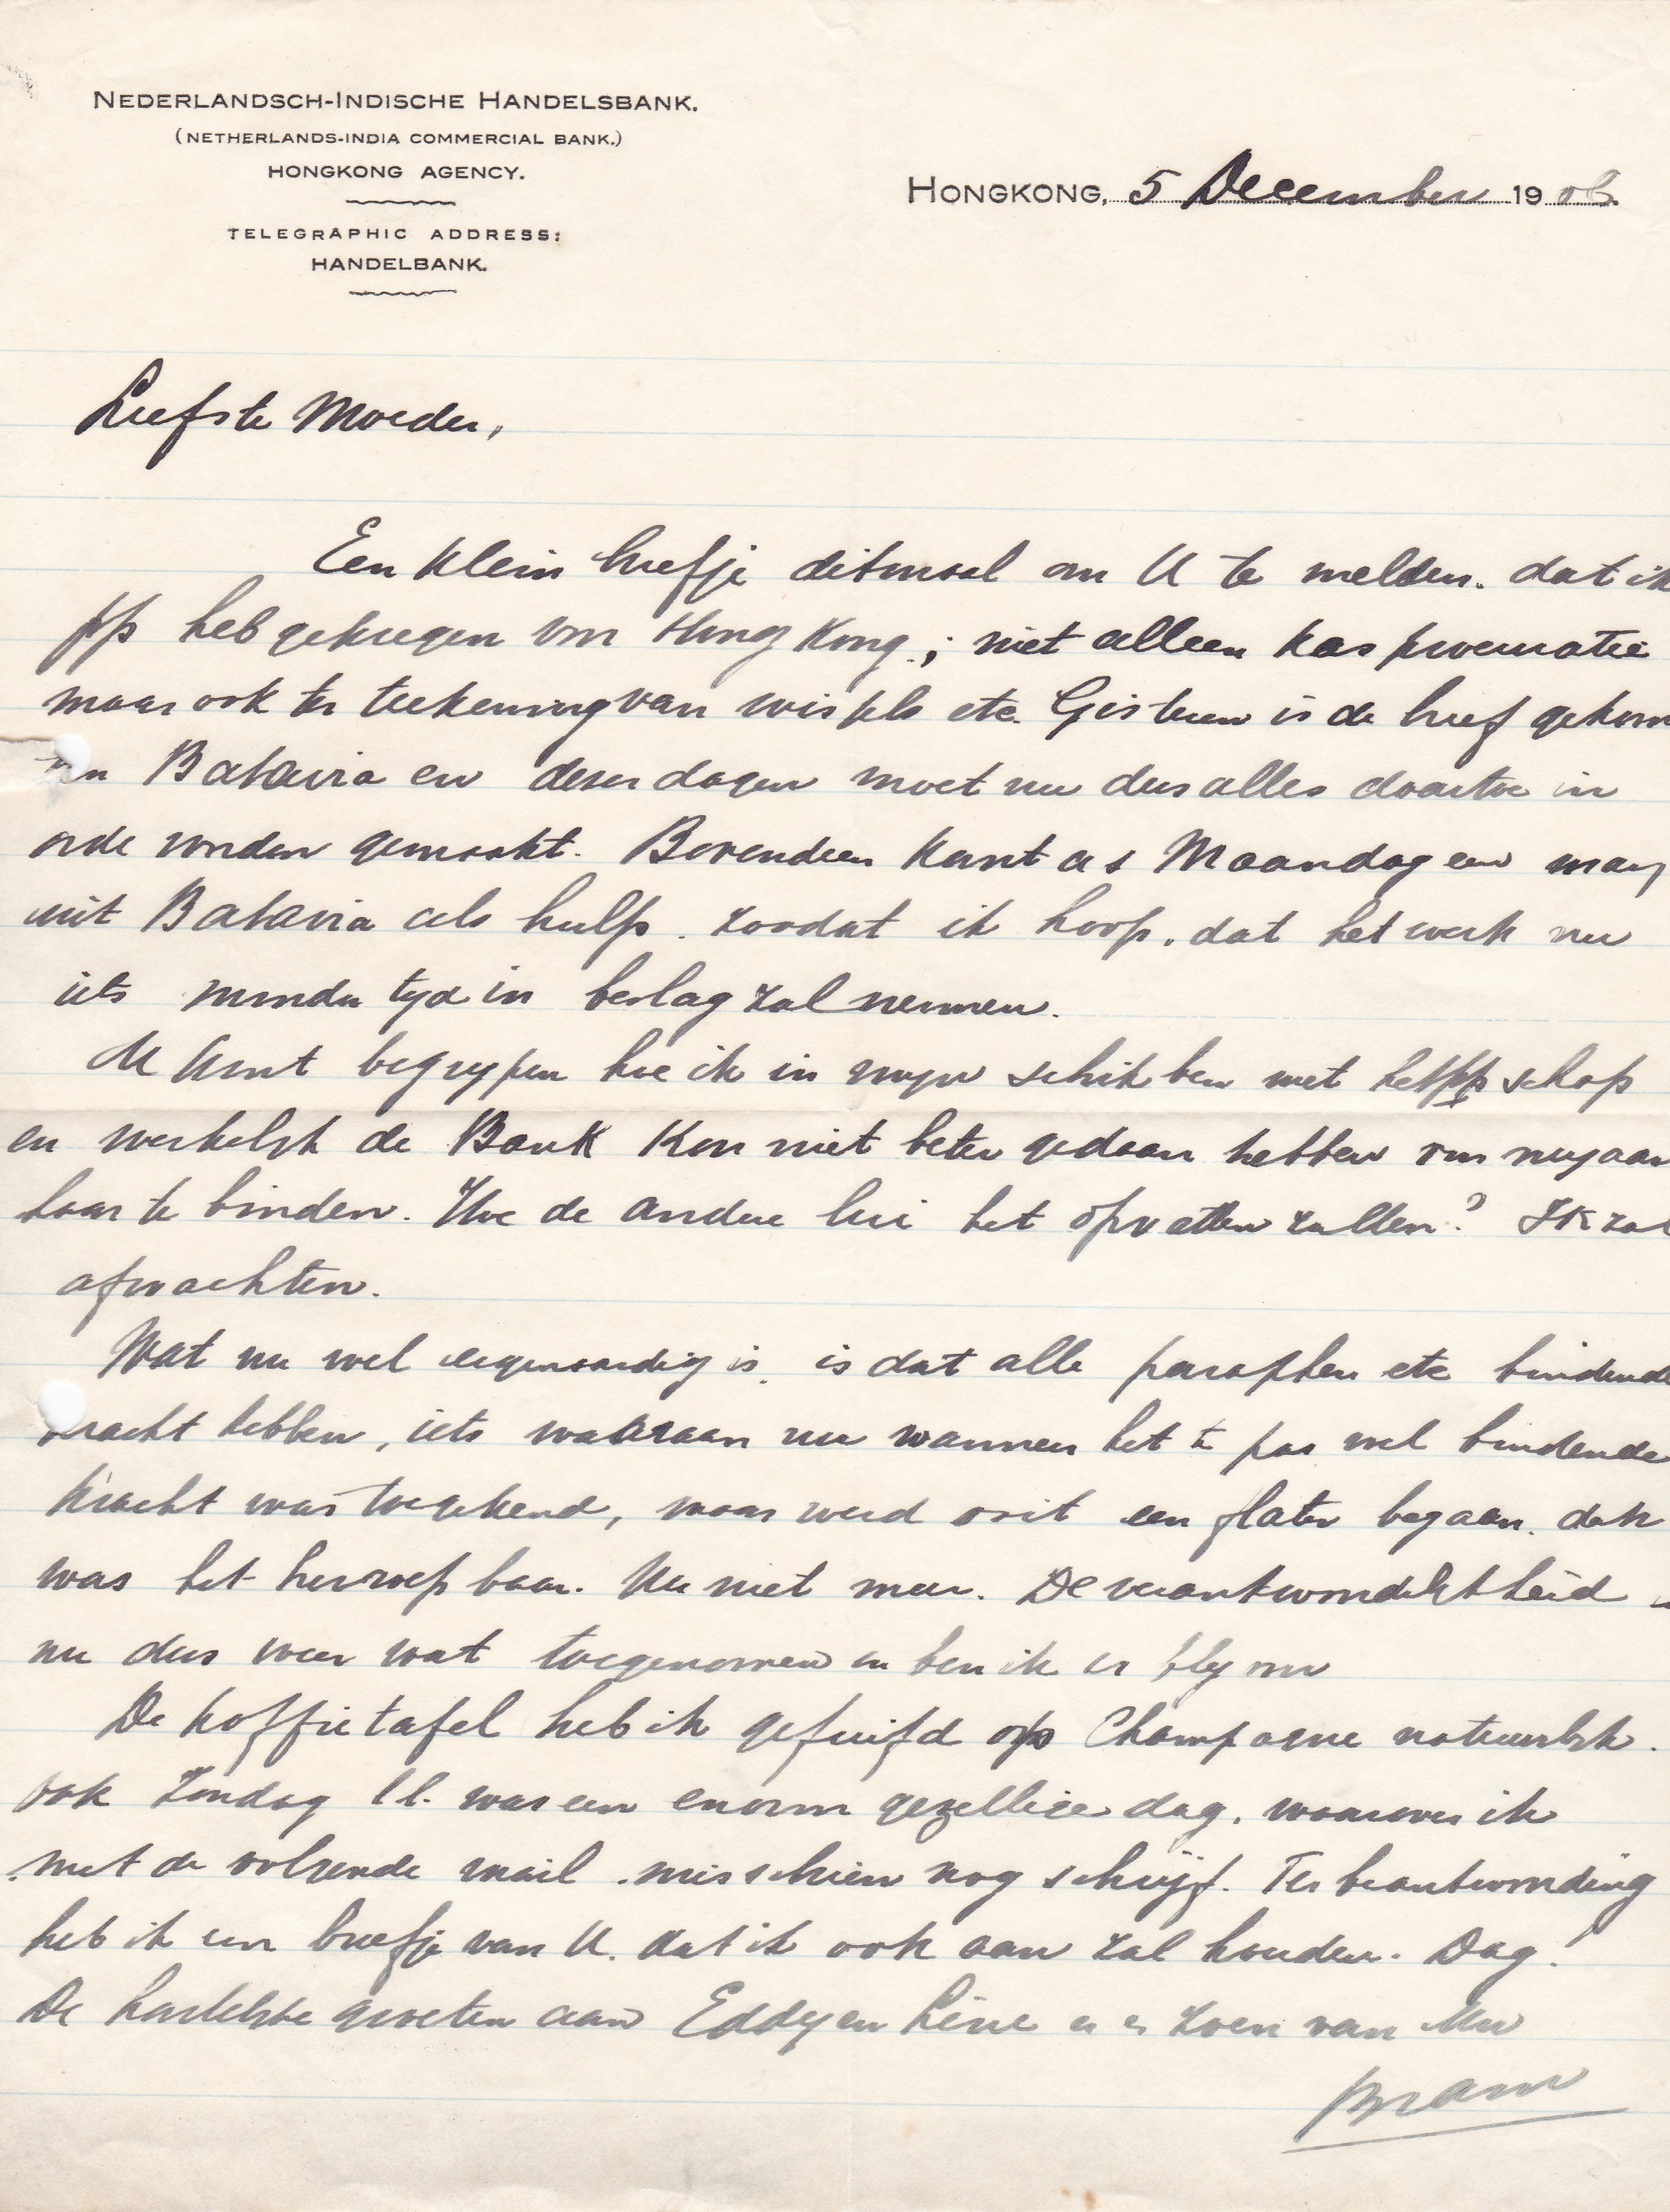 NEDERLANDSCH-INDISCHE HANDELSBANK.
(NETHERLANDS-INDIA COMMERCIAL BANK.)
HONGKONG AGENCY.
TELEGRAPHIC ADDRESS:
HANDELBANK.
HONGKONG, 5 December 1906.
Liefste Moeder,
Een klein briefje ditmaal om U te melden. dat ik
pp heb gekregen van Hong Kong.; niet alleen kas procuratie
maar ook ter teekening van wissels etc. Gisteren is de brief gekom
Batavia en dezer dagen moet nu dus alles daartoe in
orde worden gemaakt. Bovendien komt a s Maandag een man
uit Batavia als hulp. zoodat ik hoop. dat het werk nu
iets minder tyd in beslag zal nemen.
U kunt begrypen hoe ik in myn schik ben met het pp schap
en werkelyk de Bank kon niet beter gedaan hebben om my aan
haar te binden. Hoe de andere lui het opvatten zullen? Ik zal
afwachten.
Wat nu wel eigenaardig is, is dat alle paraphen etc bindende
kracht hebben, iets waaraan nu wanneer het te pas wel bindende
kracht was toegekend, maar werd ooit een flater begaan. dan
was het herroepbaar. Nu niet meer. De verantwoordelykheid
nu dus weer wat toegenomen en ben ik er bly om
De koffietafel heb ik gefuifd op Champagne natuurlyk.
ook Zondag l l. was een enorm gezellige dag. waarover ik
met de volgende mail misschien nog schryf. Ter beantwoording
heb ik een briefje van U. dat ik ook aan zal houden. Dag!
De hartelykste groeten aan Eddy en Line en een zoen van Uw
Bram